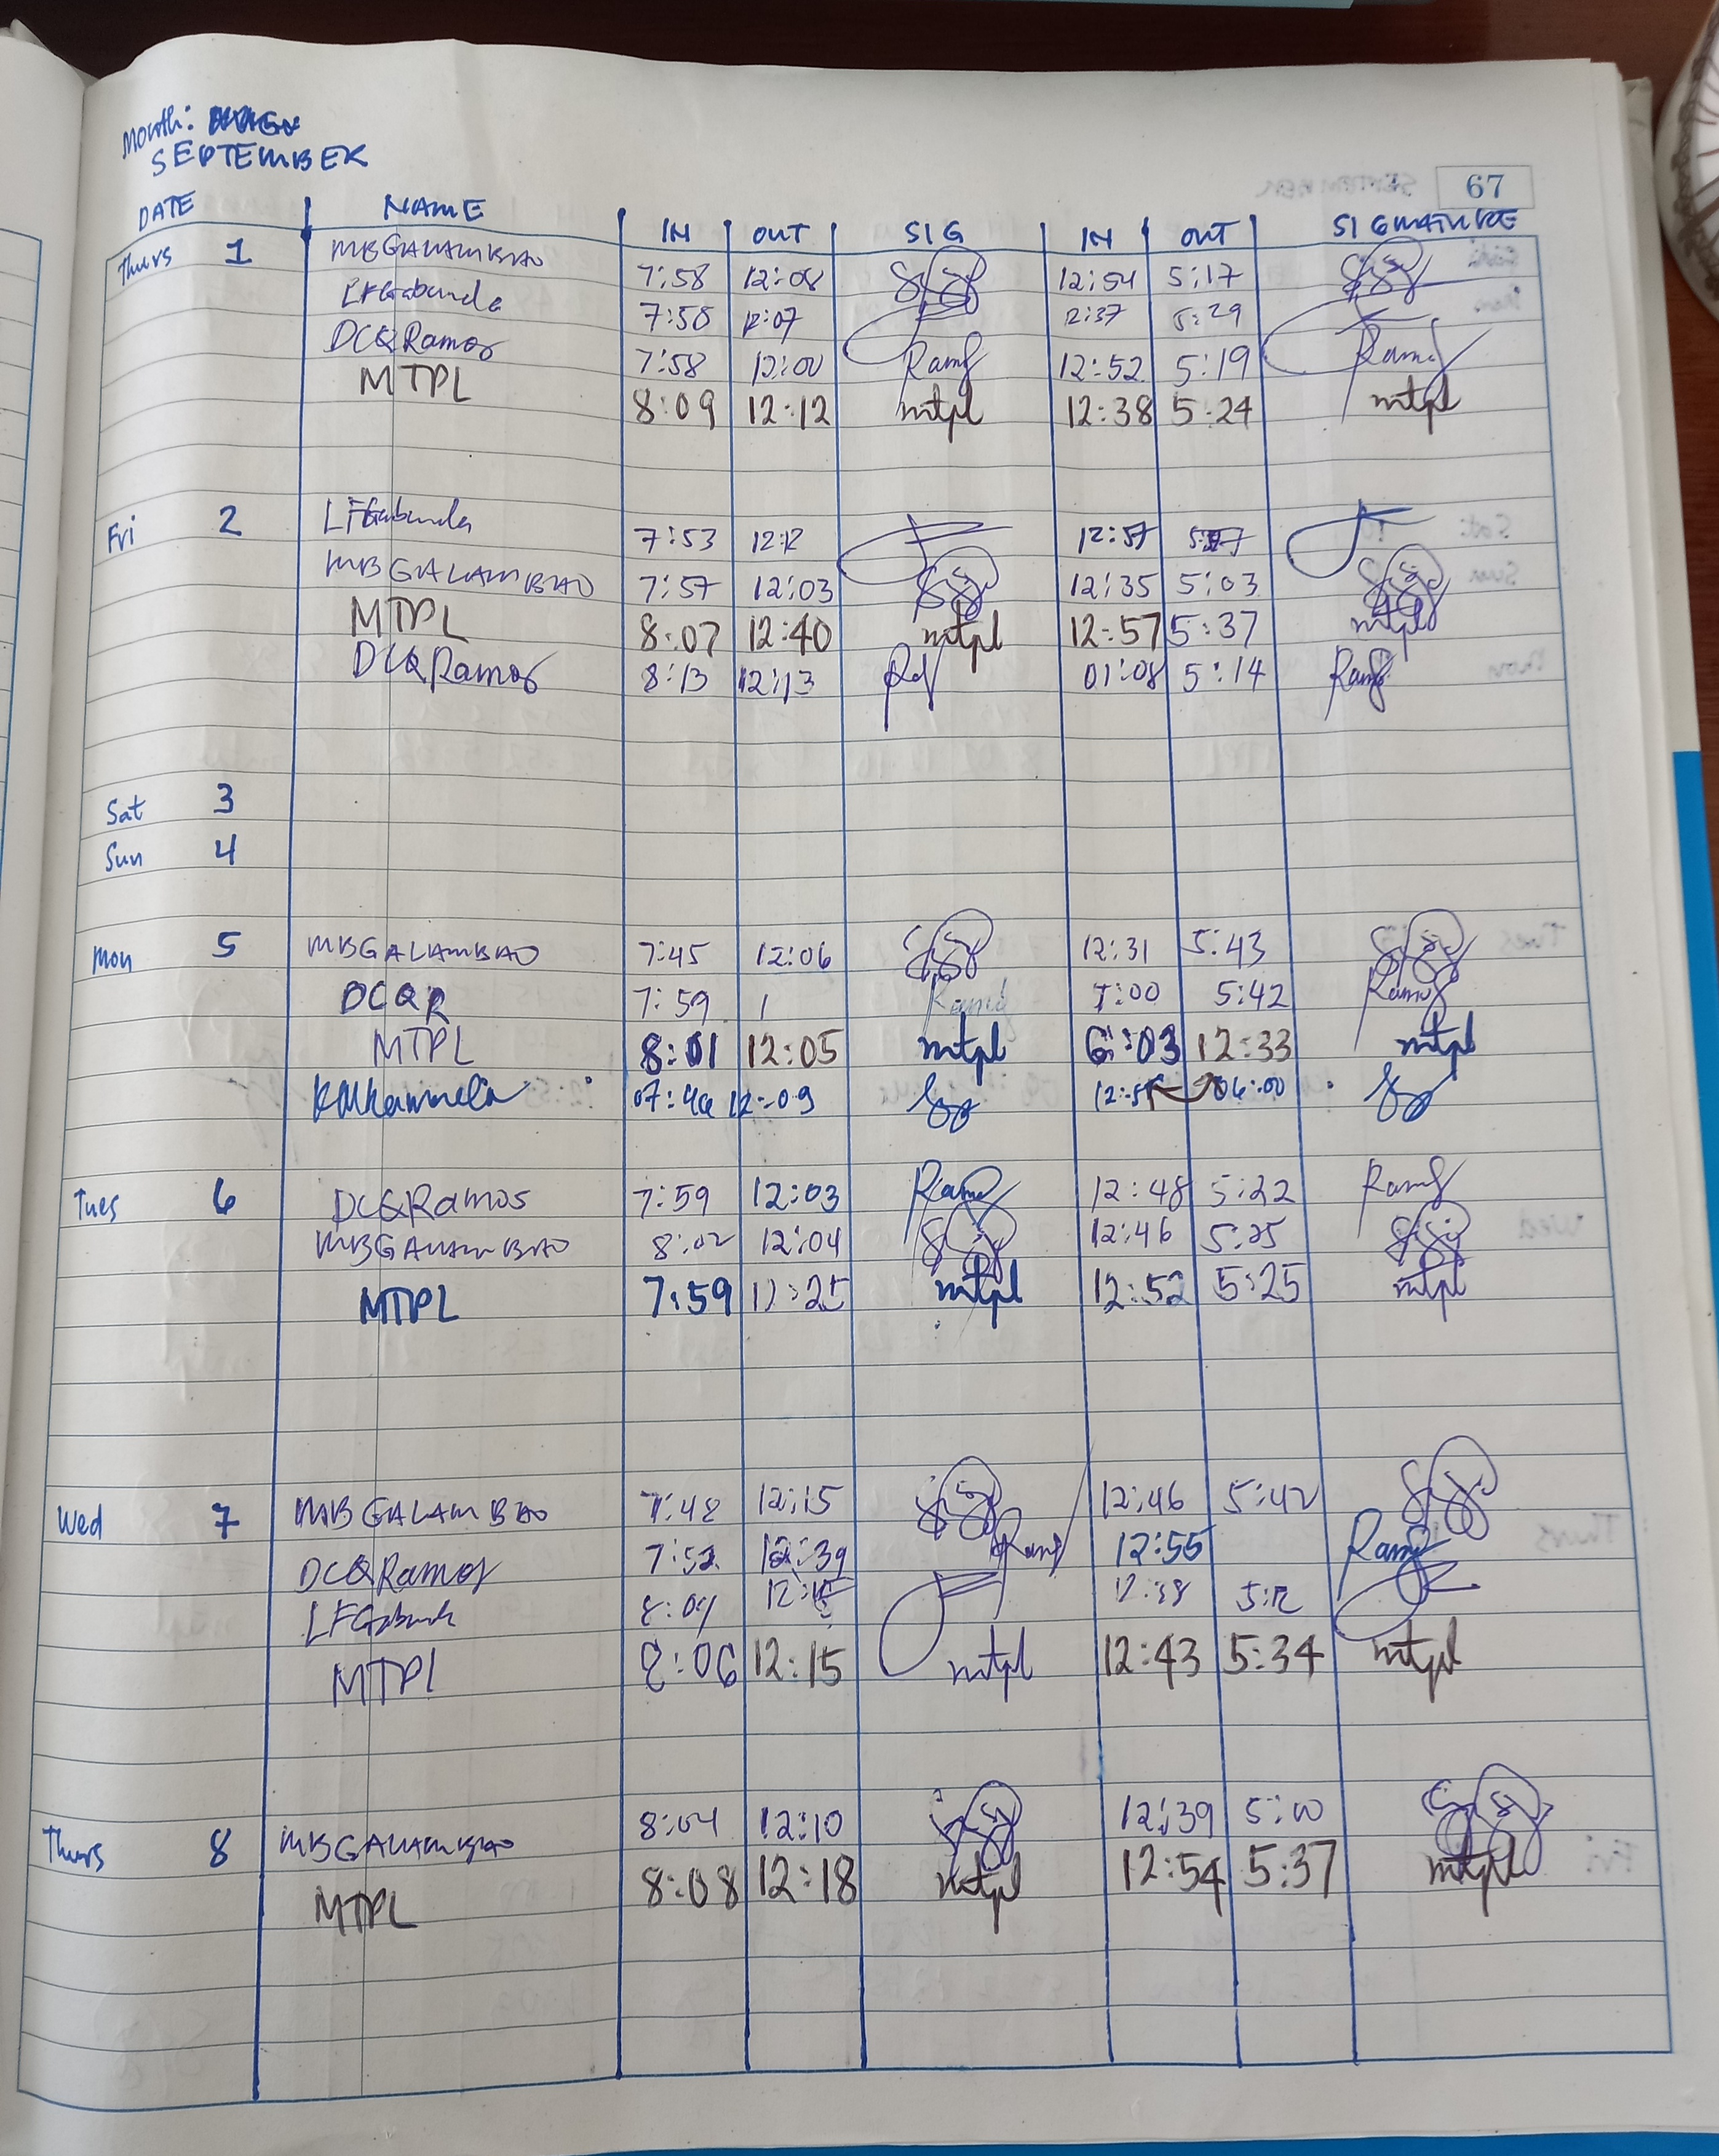 Month:
SEPTEMBER
67
DATE NAME IN OUT SIG IN OUT SIGNATURE
Thurs 1 MBGALAMBAO 7:58 12:08 12:54 5:17
LFGabunda 7:58 12:07 12:37 5:29
DCQRamos 7:58 12:00 Ramos 12:52 5:19 Ramos
MTPL 8:09 12:12 mtpl 12:38 5:24 mtpl
Fri 2 LFGabunda 7:53 12:12 12:57
MBGALAMBAO 7:57 12:03 12:35 5:03
MTPL 8:07 12:40 mtpl 12:57 5:37 mtpl
DCQRamos 8:13 12:13 01:08 5:14
Sat 3
Sun 4
Mon 5 MBGALAMBAO 7:45 12:06 12:31 5:43
DCQR 7:59 1 1:00 5:42
MTPL 8:01 12:05 mtpl 6:03 12:33 mtpl
12:09 06:00
Tues 6 DCQRamos 7:59 12:03 12:48 5:22
MBGALAMBAO 8:02 12:04 12:46 5:25
MTPL 7:59 12:25 mtpl 12:52 5:25 mtpl
Wed 7 MBGALAMBAO 7:48 12:15 12:46 5:42
DCQRamos 7:52 12:39 12:55
LFGabunda 12:38 5:12
MTPL 8:06 12:15 mtpl 12:43 5:34 mtpl
Thurs 8 MBGALAMBAO 8:04 12:10 12:39 5:00
MTPL 8:08 12:18 mtpl 12:54 5:37 mtpl